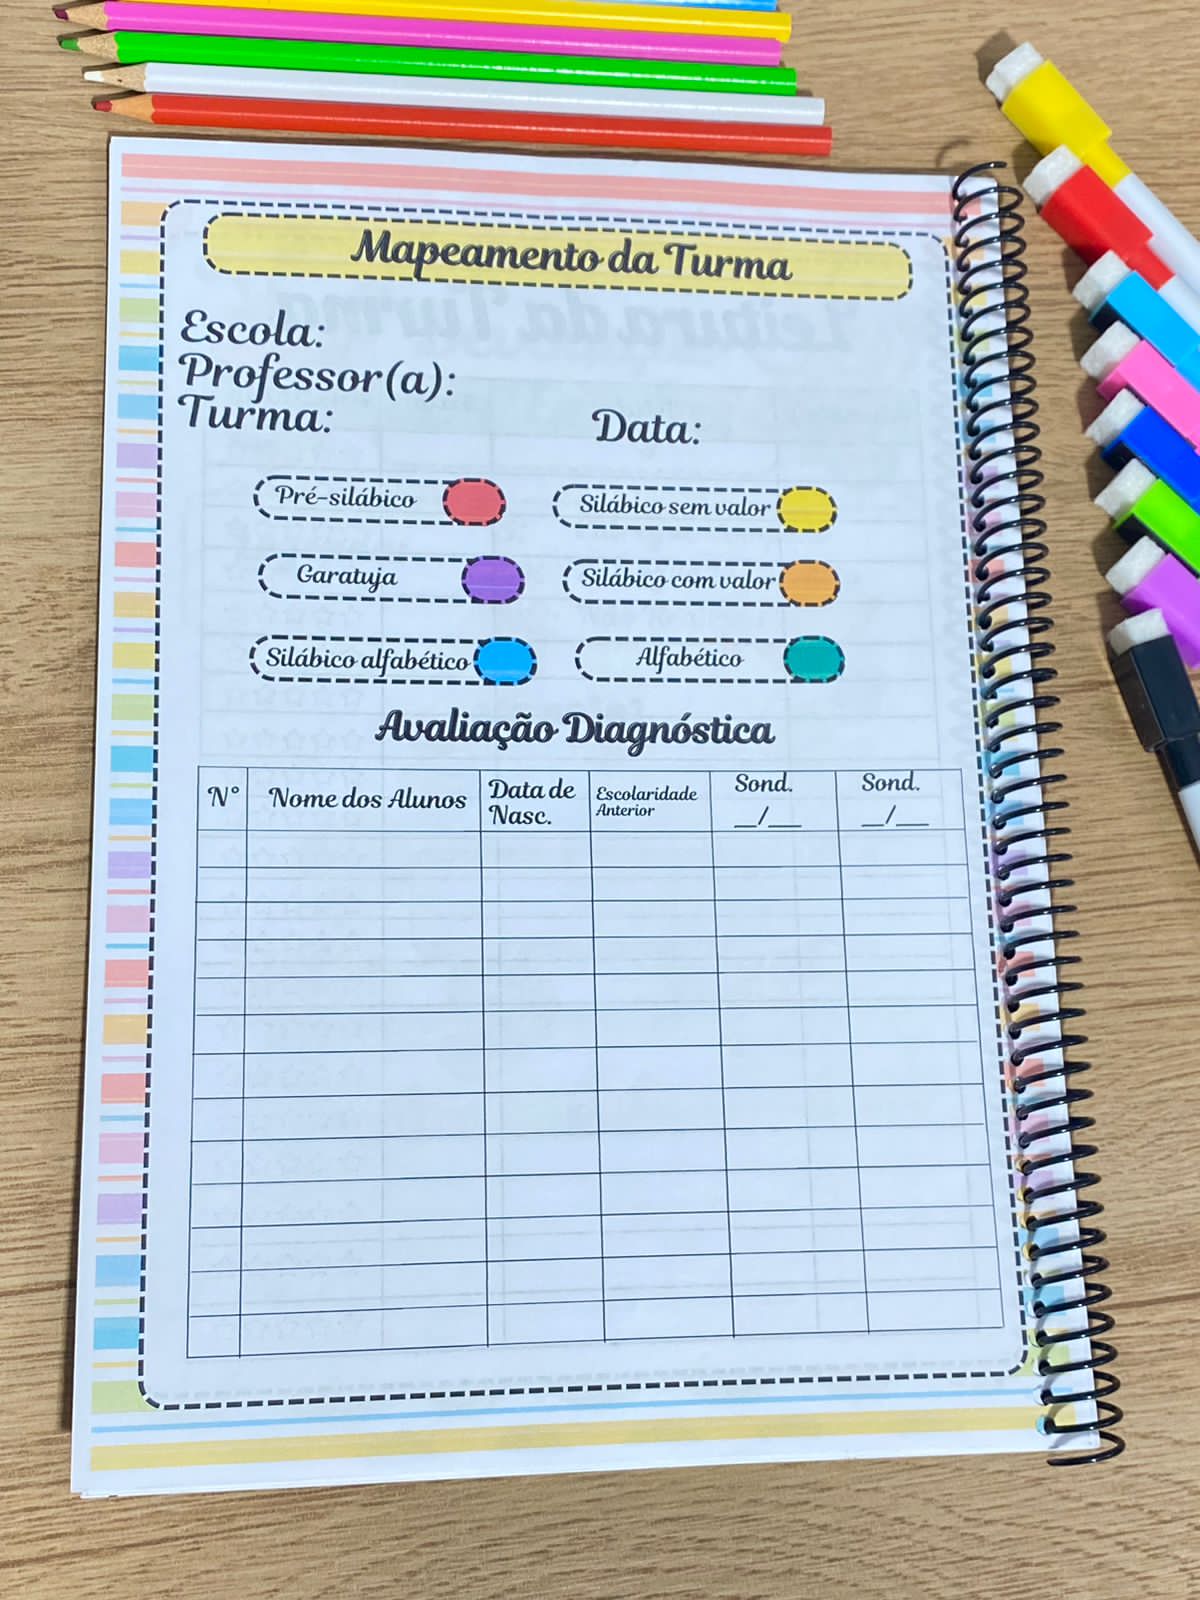 Mapeamento da Turma
Escola:
Professor(a):
Turma: Data:
Pré-silábico Silábico sem valor
Garatuja Silábico com valor
Silábico alfabético Alfabético
Avaliação Diagnóstica
N° Nome dos Alunos Data de Nasc. Escolaridade Anterior Sond. __/__ Sond. __/__